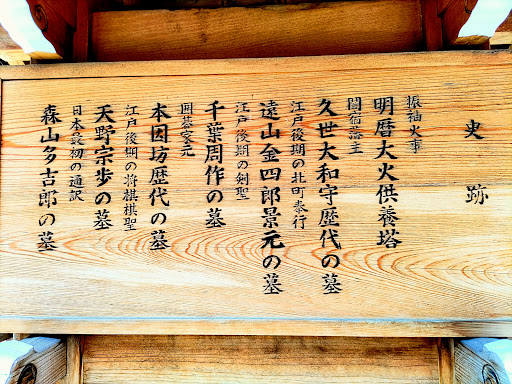 史跡
振袖火事
明暦大火供養塔
関宿藩主
久世大和守歴代の墓
江戸後期の北町奉行
遠山金四郎景元の墓
江戸後期の剣聖
千葉周作の墓
囲碁家元
本因坊歴代の墓
江戸後期の将棋棋聖
天野宗歩の墓
日本最初の通訳
森山多吉郎の墓